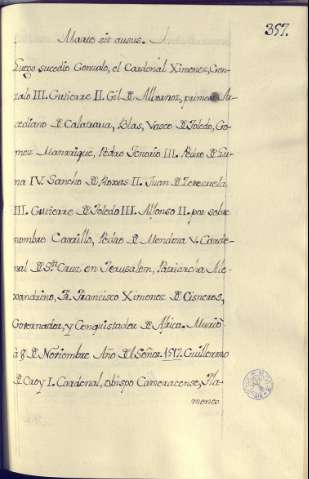 357.
Marte sit ausus.
Luego sucedio Gonzalo, el Cardenal Ximenez, Gon-
zalo III. Gutierre II. Gil D. Albornoz, primero Ar-
cediano D. Calatrava, Blas, Vasco D. Toledo, Go-
mez Manrrique, Pedro Tenorio III. Pedro D. Lu-
na IV. Sancho D. Roxas II. Juan D. Zerezuela
III. Gutierre D. Toledo III. Alfonso II. por sobre
nombre Carrillo, Pedro D. Mendoza V. Carde-
nal D. Sta. Cruz en Jerusalen, Patriarcha Ale-
xandrino, Fr. Francisco Ximenez D. Cisneros,
Governador, y Conquistador D. Africa. Murió
à 8 D. Noviembre Año D.l Señor 1517. Guillermo
D. Croy I. Cardenal, obispo Cameracense, Fla-
menco